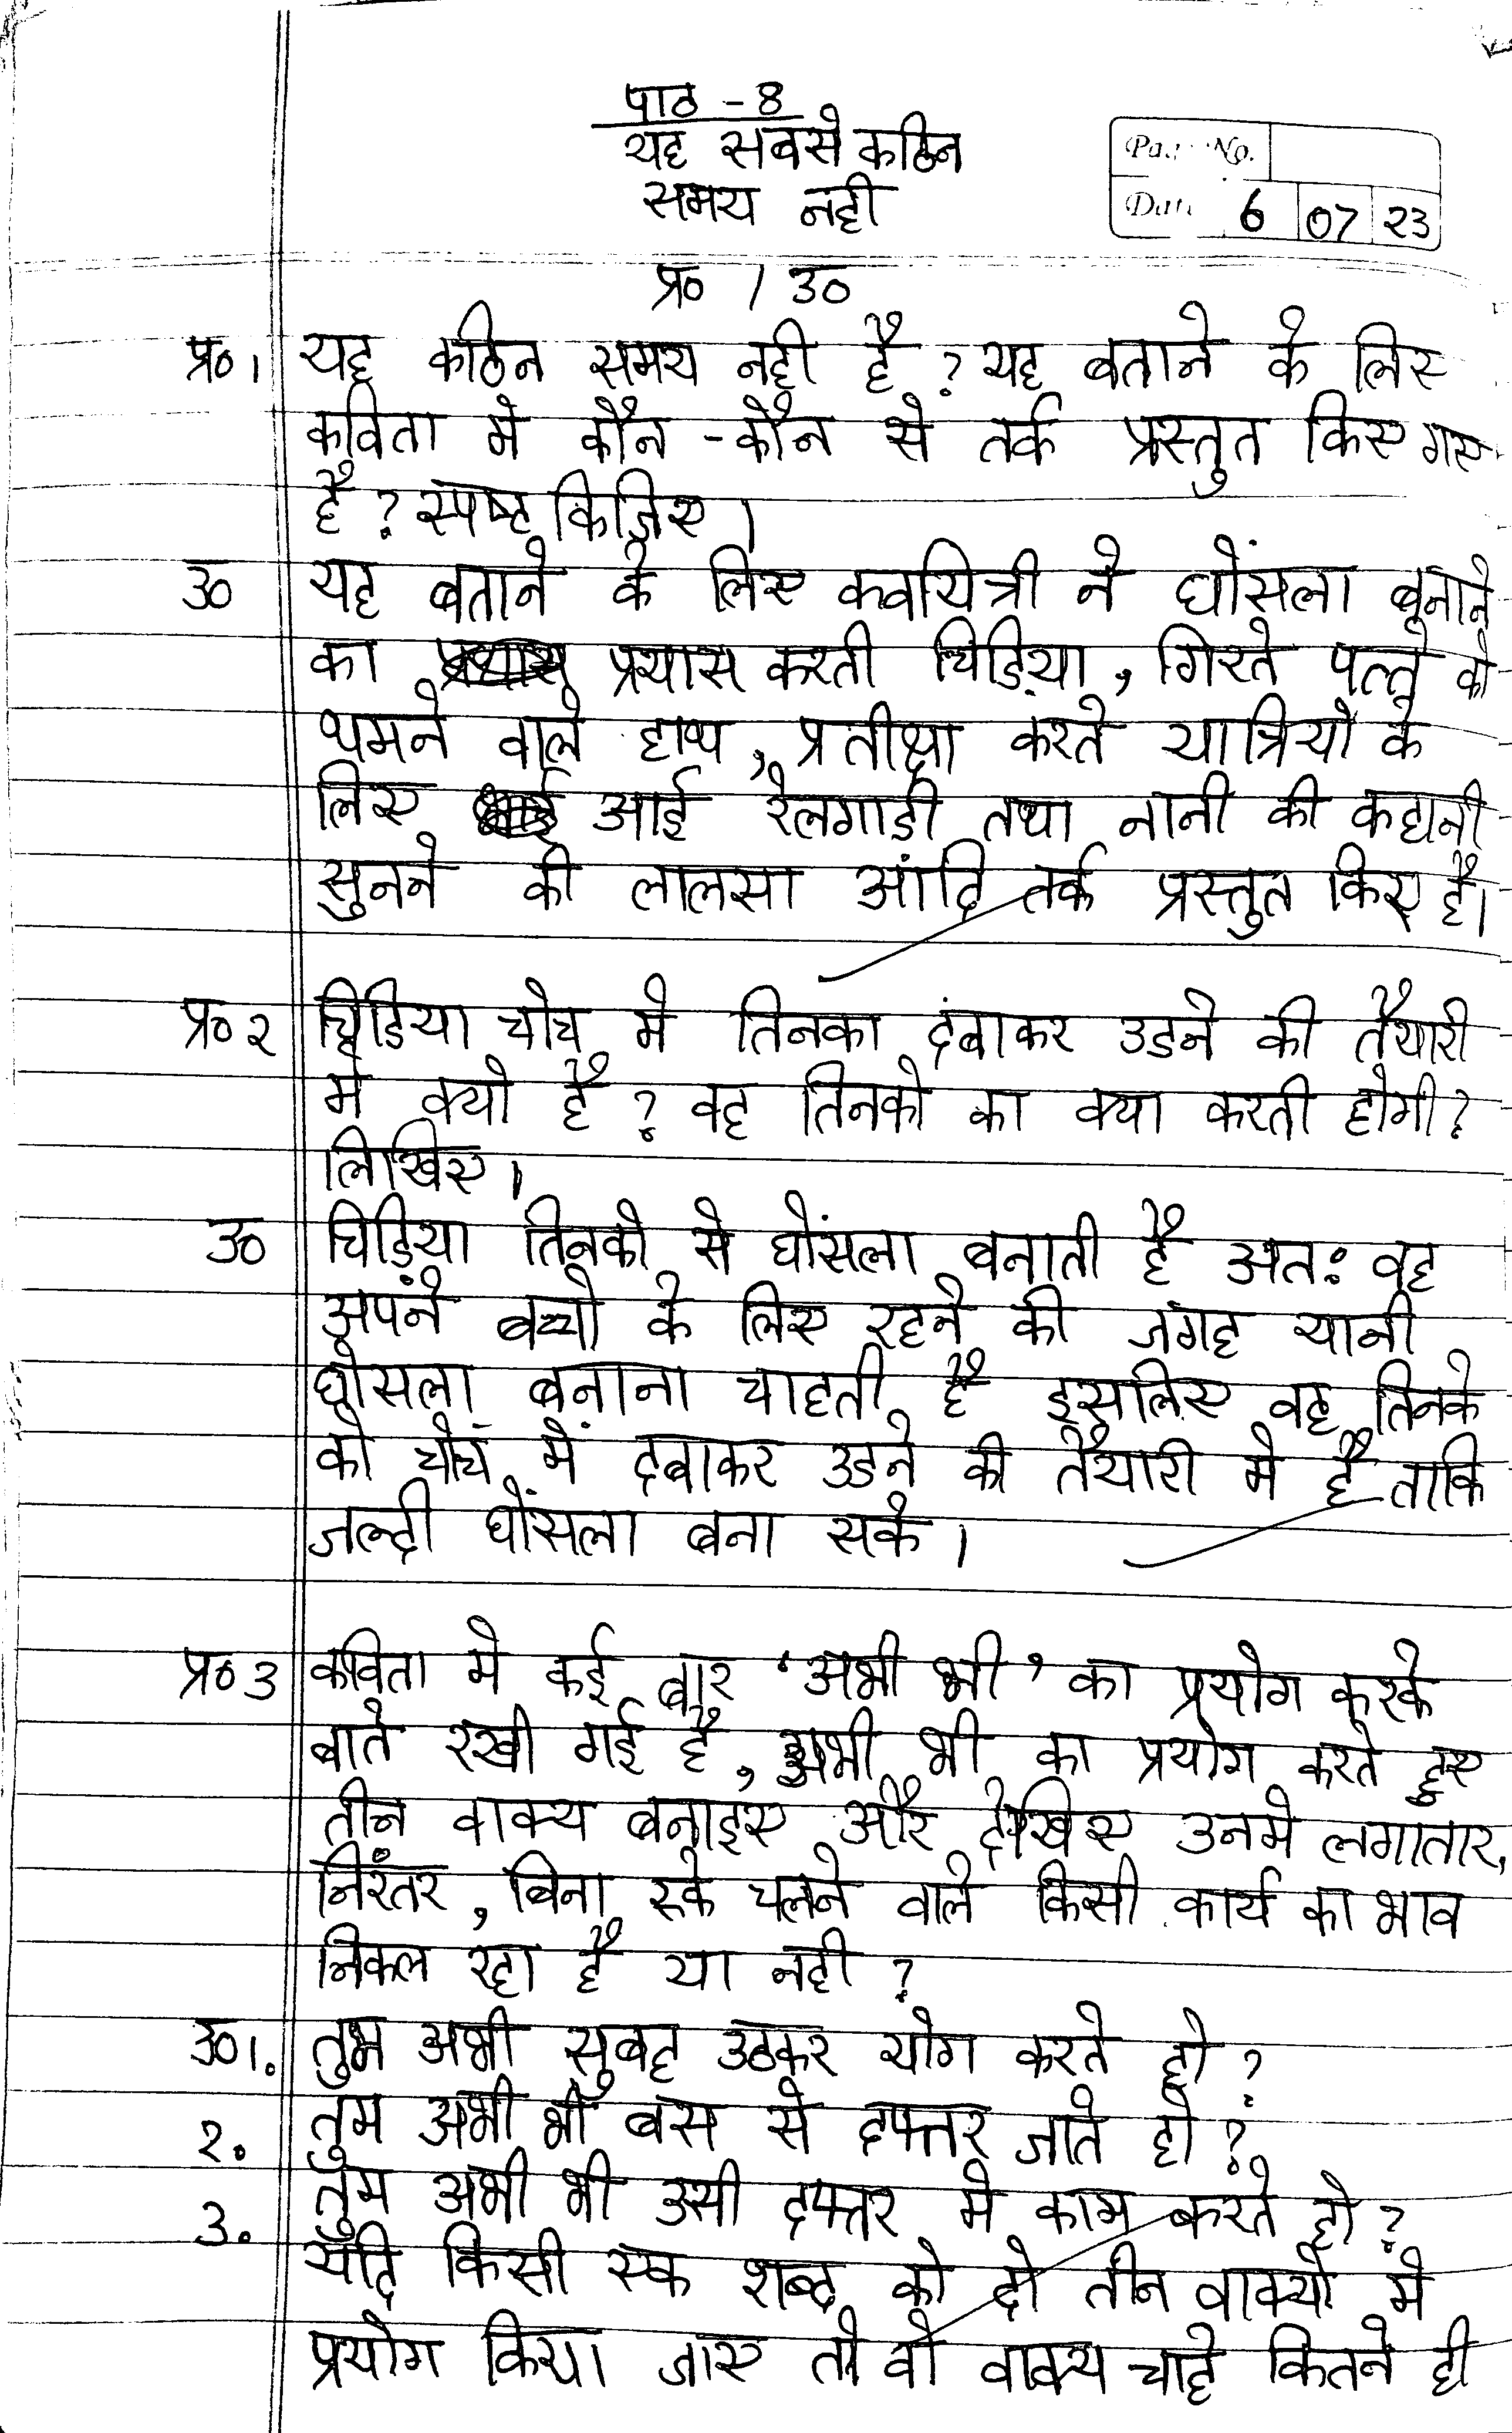 पाठ - 8
यह सबसे कठिन
समय नही
Page No.
Date 6 07 23
प्र० / उ०
प्र०1 यह कठिन समय नही है ? यह बताने के लिए
कविता मे कौन - कौन से तर्क प्रस्तुत किए गए
है ? स्पष्ट किजिए ।
उ० यह बताने के लिए कवयित्री ने घोंसला बनाने
का प्रयास करती चिड़िया , गिरते पत्ते को
थमने वाले हाथ , प्रतीक्षा करते यात्रियो के
लिए आई रेलगाडी तथा नानी की कहानी
सुनने की लालसा आदि तर्क प्रस्तुत किए है।
प्र० २ चिडिया चोच मे तिनका दबाकर उडने की तैयारी
मे क्यो है ? वह तिनको का क्या करती होगी ?
लिखिए ।
उ० चिड़िया तिनको से घोंसला बनाती है अतः वह
अपने बच्चो के लिए रहने की जगह यानी
घोसला बनाना चाहती है इसलिए वह तिनके
को चोच में दबाकर उडने की तैयारी मे है ताकि
जल्दी घोंसला बना सके ।
प्र० ३ कविता मे कई बार ' अभी भी ' का प्रयोग करके
बाते रखी गई है , अभी भी का प्रयोग करते हुए
तीन वाक्य बनाइए और देखिए उनमे लगातार,
निरंतर , बिना रुके चलने वाले किसी कार्य का भाव
निकल रहा है या नही ?
उ०1. तुम अभी सुबह उठकर योग करते हो ?
२. तुम अभी भी बस से दफ्तर जाते हो ?
३. तुम अभी भी उसी दफ्तर मे काम करते हो ?
यदि किसी एक शब्द को दो तीन वाक्यो मे
प्रयोग किया जाए तो वो वाक्य चाहे कितने ही